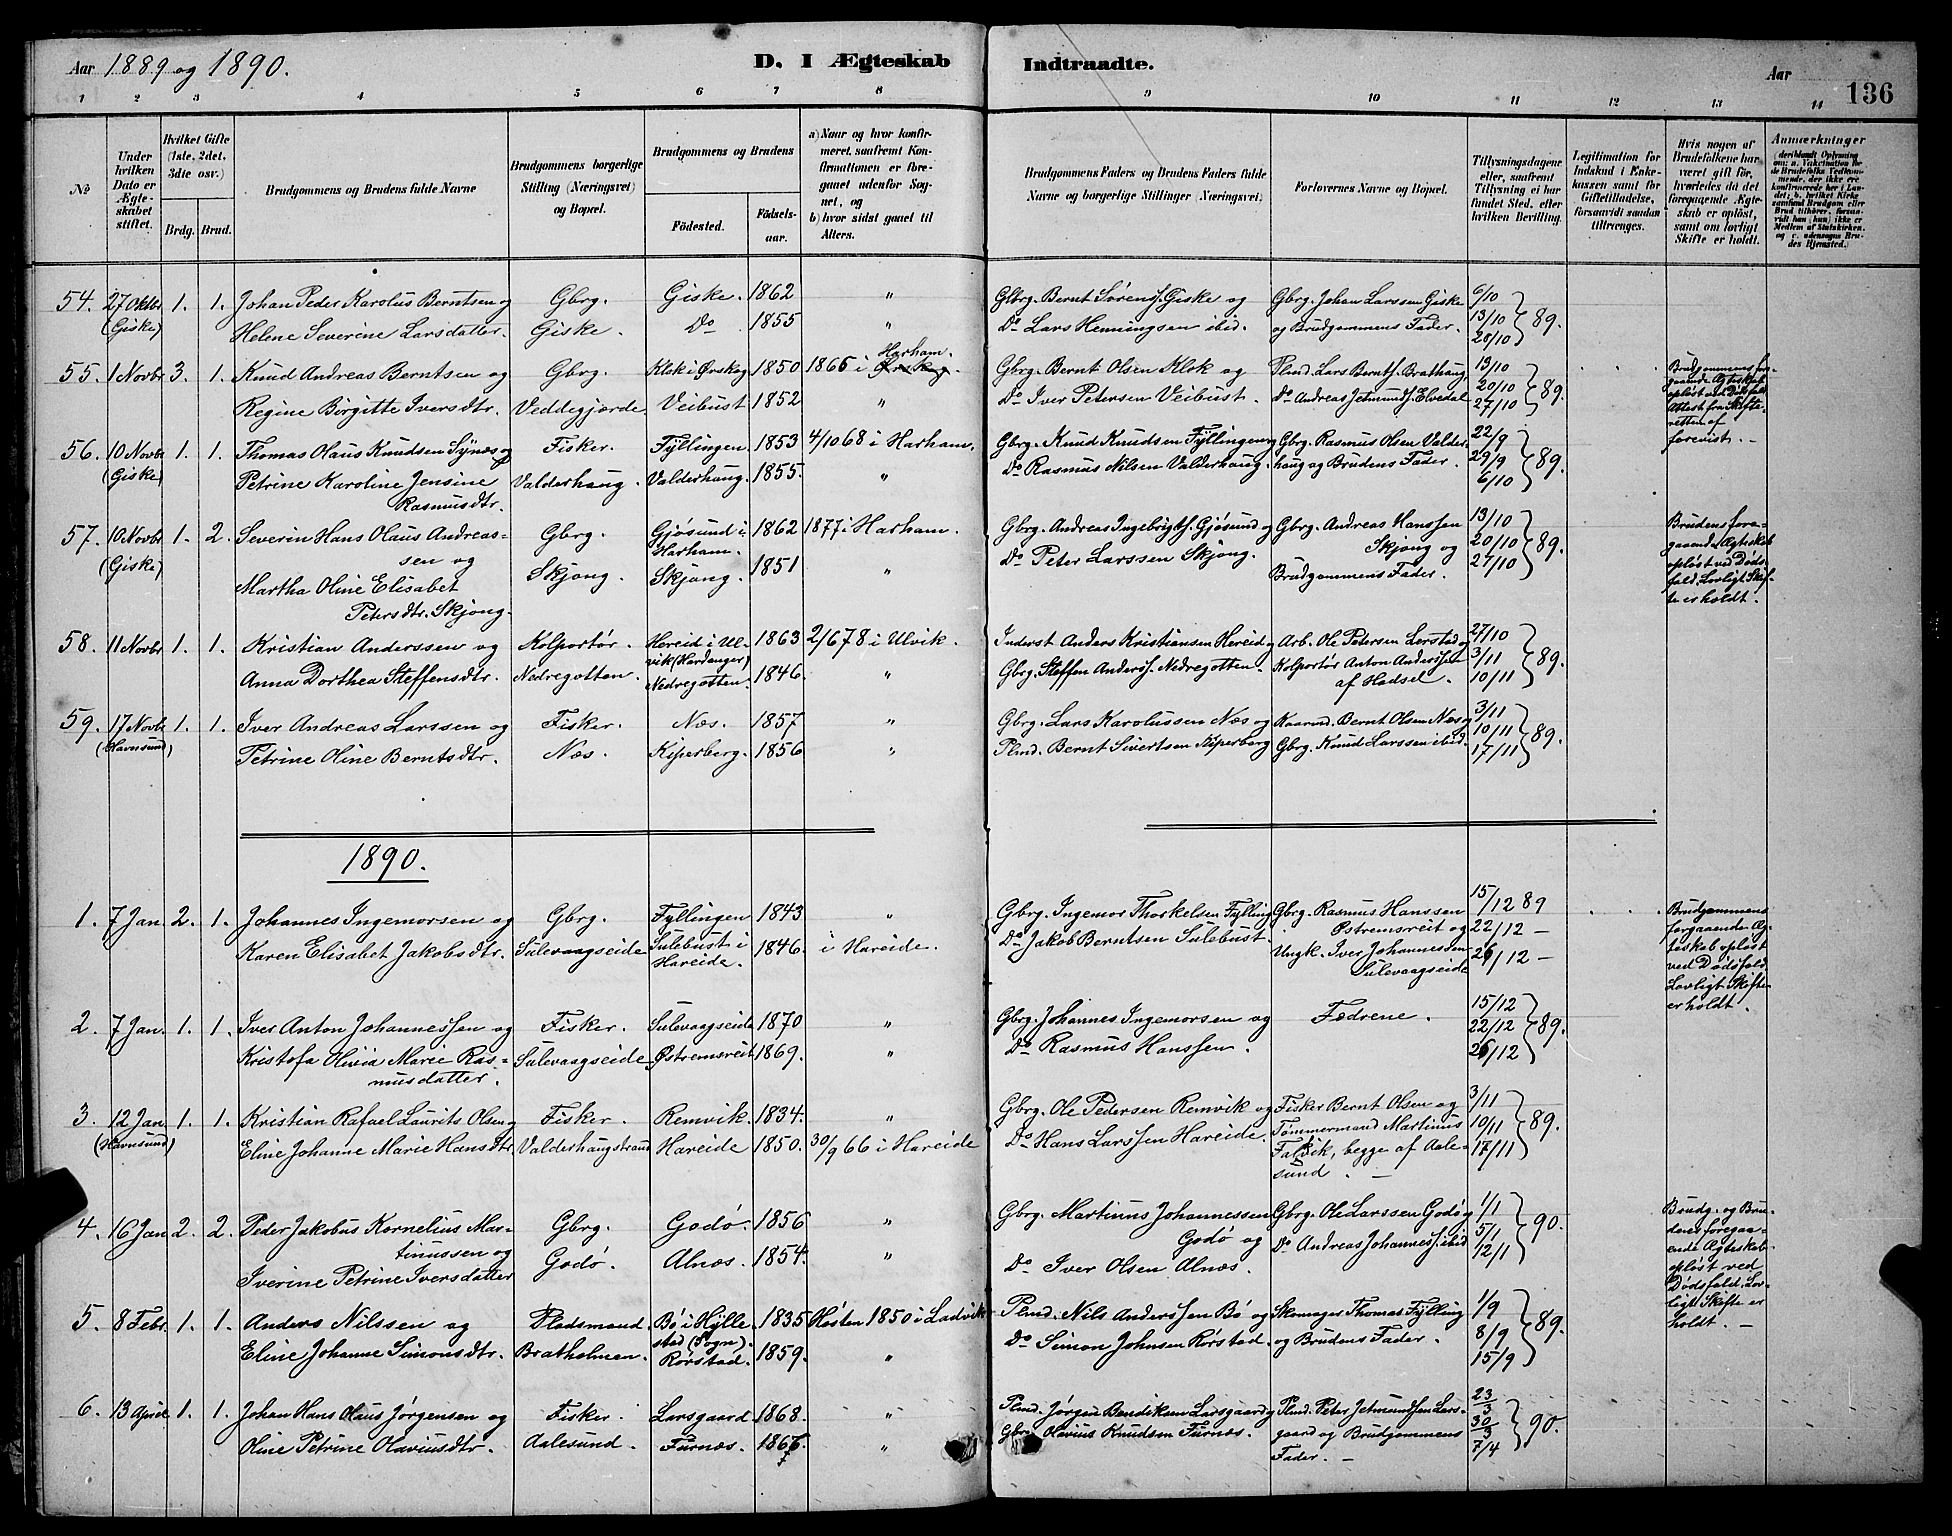 Aar 1889 og 1890.
D. I Ægteskab Indtraadte.
Aar
136
1 2 3 4 5 6 7 8 9 10 11 12 13 14
No
Under hvilken Dato er Ægteskabet stiftet.
Hvilket Gifte (1ste, 2det, 3die osv.)
Brdg. Brud.
Brudgommens og Brudens fulde Navne
Brudgommens borgerlige Stilling (Næringsvei) og Bopæl.
Brudgommens og Brudens
Fødested. Fødselsaar.
a) Naar og hvor konfirmeret, saafremt Konfirmationen er foregaaet udenfor Sognet, og
b) hvor sidst gaaet til Alters.
Brudgommens Faders og Brudens Faders fulde Navne og borgerlige Stillinger (Næringsvei)
Forlovernes Navne og Bopæl.
Tillysningsdagene eller, saafremt Tillysning ei har fundet Sted, efter hvilken Bevilling.
Legitimation for Indskud i Enkekassen samt for Giftetilladelse, forsaavidt saadan tiltrænges.
Hvis nogen af Brudefolkene har været gift før, hvorledes da det foregaaende Ægteskab er opløst, samt om lovligt Skifte er holdt.
Anmærkninger
54. 27 Oktbr 1. 1. Johan Peder Karolus Berntsen og Gbrg. Giske. 1862 " Gbrg. Bernt Sørens. Giske og Gbrg. Johan Larssen Giske 6/10
(Giske) Helene Severine Larsdatter. Giske. Do 1855 " Do Lars Henningsen ibid. og Brudgommens Fader. 13/10 89.
20/10
55. 1 Novbr 3. 1. Knud Andreas Berntsen og Gbrg. Klok i Ørskog 1850 1865 i Ørskog. Harham. Gbrg. Bernt Olsen Klok og Plmd. Lars Bernts. Brathaug, 13/10
Regine Birgitte Iversdtr. Veddegjerde Veibust 1852 " Do Iver Petersen Veibust. Do Andreas Jetmunds. Elvedal 20/10 89.
27/10
Brudgommens forgaaende Ægteskab opløst ved Dødsfald Attest fra Skifteretten af forevist. –
56. 10 Novbr 1. 1. Thomas Olaus Knudsen Synes og Fisker. Fyllingen 1853 4/10 68 i Harham. Gbrg. Knud Knudsen Fyllingen og Gbrg. Rasmus Olsen Valder- 22/9
(Giske) Petrine Karoline Jensine Valderhaug. Valderhaug. 1855. " Do Rasmus Nilsen Valderhaug haug og Brudens Fader. 29/9 89.
Rasmusdtr. 6/10
57. 10 Novbr 1. 2. Severin Hans Olaus Andreas- Gbrg. Gjøsund i 1862 1877 i Harham. Gbrg. Andreas Ingebrigts. Gjøsund og Gbrg. Andreas Hanssen 13/10
(Giske) sen og Harham. Do Peter Larssen Skjong. Skjong og 20/10 89.
Martha Oline Elisabet Skjong. Skjong. 1851 " Brudgommens Fader. 27/10
Petersdtr. Skjong.
Brudens foregaaende Ægteskab opløst ved Dødsfald. Lovligt Skifte er holdt.
58. 11 Novbr 1. 1. Kristian Anderssen og Kolportør. Hereid i Ul- 1863 2/6 78 i Ulvik. Inderst Anders Kristiansen Hereid og Arb. Ole Petersen Lerstad og 27/10
vik (Hardanger)
Anna Dorthea Steffensdtr. Nedregotten. Nedregotten. 1846. " Gbrg. Steffen Anders. Nedregotten. Kolportør Anton Anderssen 3/11 89.
af Hadsel. 10/11
59. 17 Novbr 1. 1. Iver Andreas Larssen og Fisker. Næs. 1857 " Gbrg. Lars Karolussen Næs og Kaarmd. Bernt Olsen Næs og 3/11
(Havnsund) Petrine Oline Berntsdtr. Næs. Kiperberg. 1856 " Plmd. Bernt Sivertsen Kiperberg Gbrg. Knud Larssen ibid. 10/11 89.
17/11
1890.
1. 7 Jan. 2. 1. Johannes Ingemorsen og Gbrg. Fyllingen 1843 " Gbrg. Ingemor Thorkelsen Fylling Gbrg. Rasmus Hanssen 15/12 89
Karen Elisabet Jakobsdtr. Sulevaagseide Sulebust i Hareide. 1846. i Hareide. Do Jakob Berntsen Sulebust. Østremsreit og 22/12 –
Ungk. Iver Johannessen Sulevaagseide 26/12 –
Brudgommens forgaaende Ægteskab opløst ved Dødsfald Lovligt Skifte er holdt.
2. 7 Jan. 1. 1. Iver Anton Johannessen og Fisker. Sulevaagseide 1870 " Gbrg. Johannes Ingemorsen og Fædrene. 15/12
Kristofa Olivia Marie Ras- Sulevaagseide Østremsreit 1869. " Do Rasmus Hanssen. 22/12 89.
musdatter. 26/12
3. 12 Jan. 1. 1. Kristian Rafael Laurits Olsen og Fisker. Remvik. 1834. " Gbrg. Ole Pedersen Remvik og Fisker Bernt Olsen og 3/11
(Havnsund) Eline Johanne Marie Hansdtr. Valderhaugstrand Hareide 1850. 30/9 66 i Hareide Do Hans Larssen Hareide. Tømmermand Martinus 10/11 89.
Falvik, begge af Aale- 17/11
sund. –
4. 16 Jan. 2. 2. Peder Jakobus Kornelius Mar- Gbrg. Godø. 1856 " Gbrg. Martinus Johannessen Gbrg. Ole Larssen Godø og 1/1
tinussen og Godø og Do Andreas Johanness. ibid 5/1 90.
Iverine Petrine Iversdatter Godø. Alnæs. 1854. " Do Iver Olsen Alnæs. 12/1
Brudg. og Brudens foregaaende Ægteskab opløst ved Dødsfald. Lovligt Skifte er holdt. –
5. 8 Febr. 1. 1. Anders Nilssen og Pladsmand. Bø i Hylle- 1835 Høsten 1850 i Ladvik Plmd. Nils Anderssen Bø og Skomager Thomas Fylling 1/9
stad (Sogn).
Eline Johanne Simonsdtr. Bratholmen. Rørstad. 1859. " Do Simon Johnsen Rørstad og Brudens Fader. 8/9 89.
15/9
6. 13 April 1. 1. Johan Hans Olaus Jørgensen og Fisker. Larsgaard 1868. " Plmd. Jørgen Bendiksen Larsgaard og Plmd. Peter Jetmundsen Lars- 23/3
Oline Petrine Olaviusdtr. Aalesund. Furnæs. 1867. " Gbrg. Olavius Knudsen Furnæs. gaard og Brudgommens 30/3 90.
Fader. – 7/4